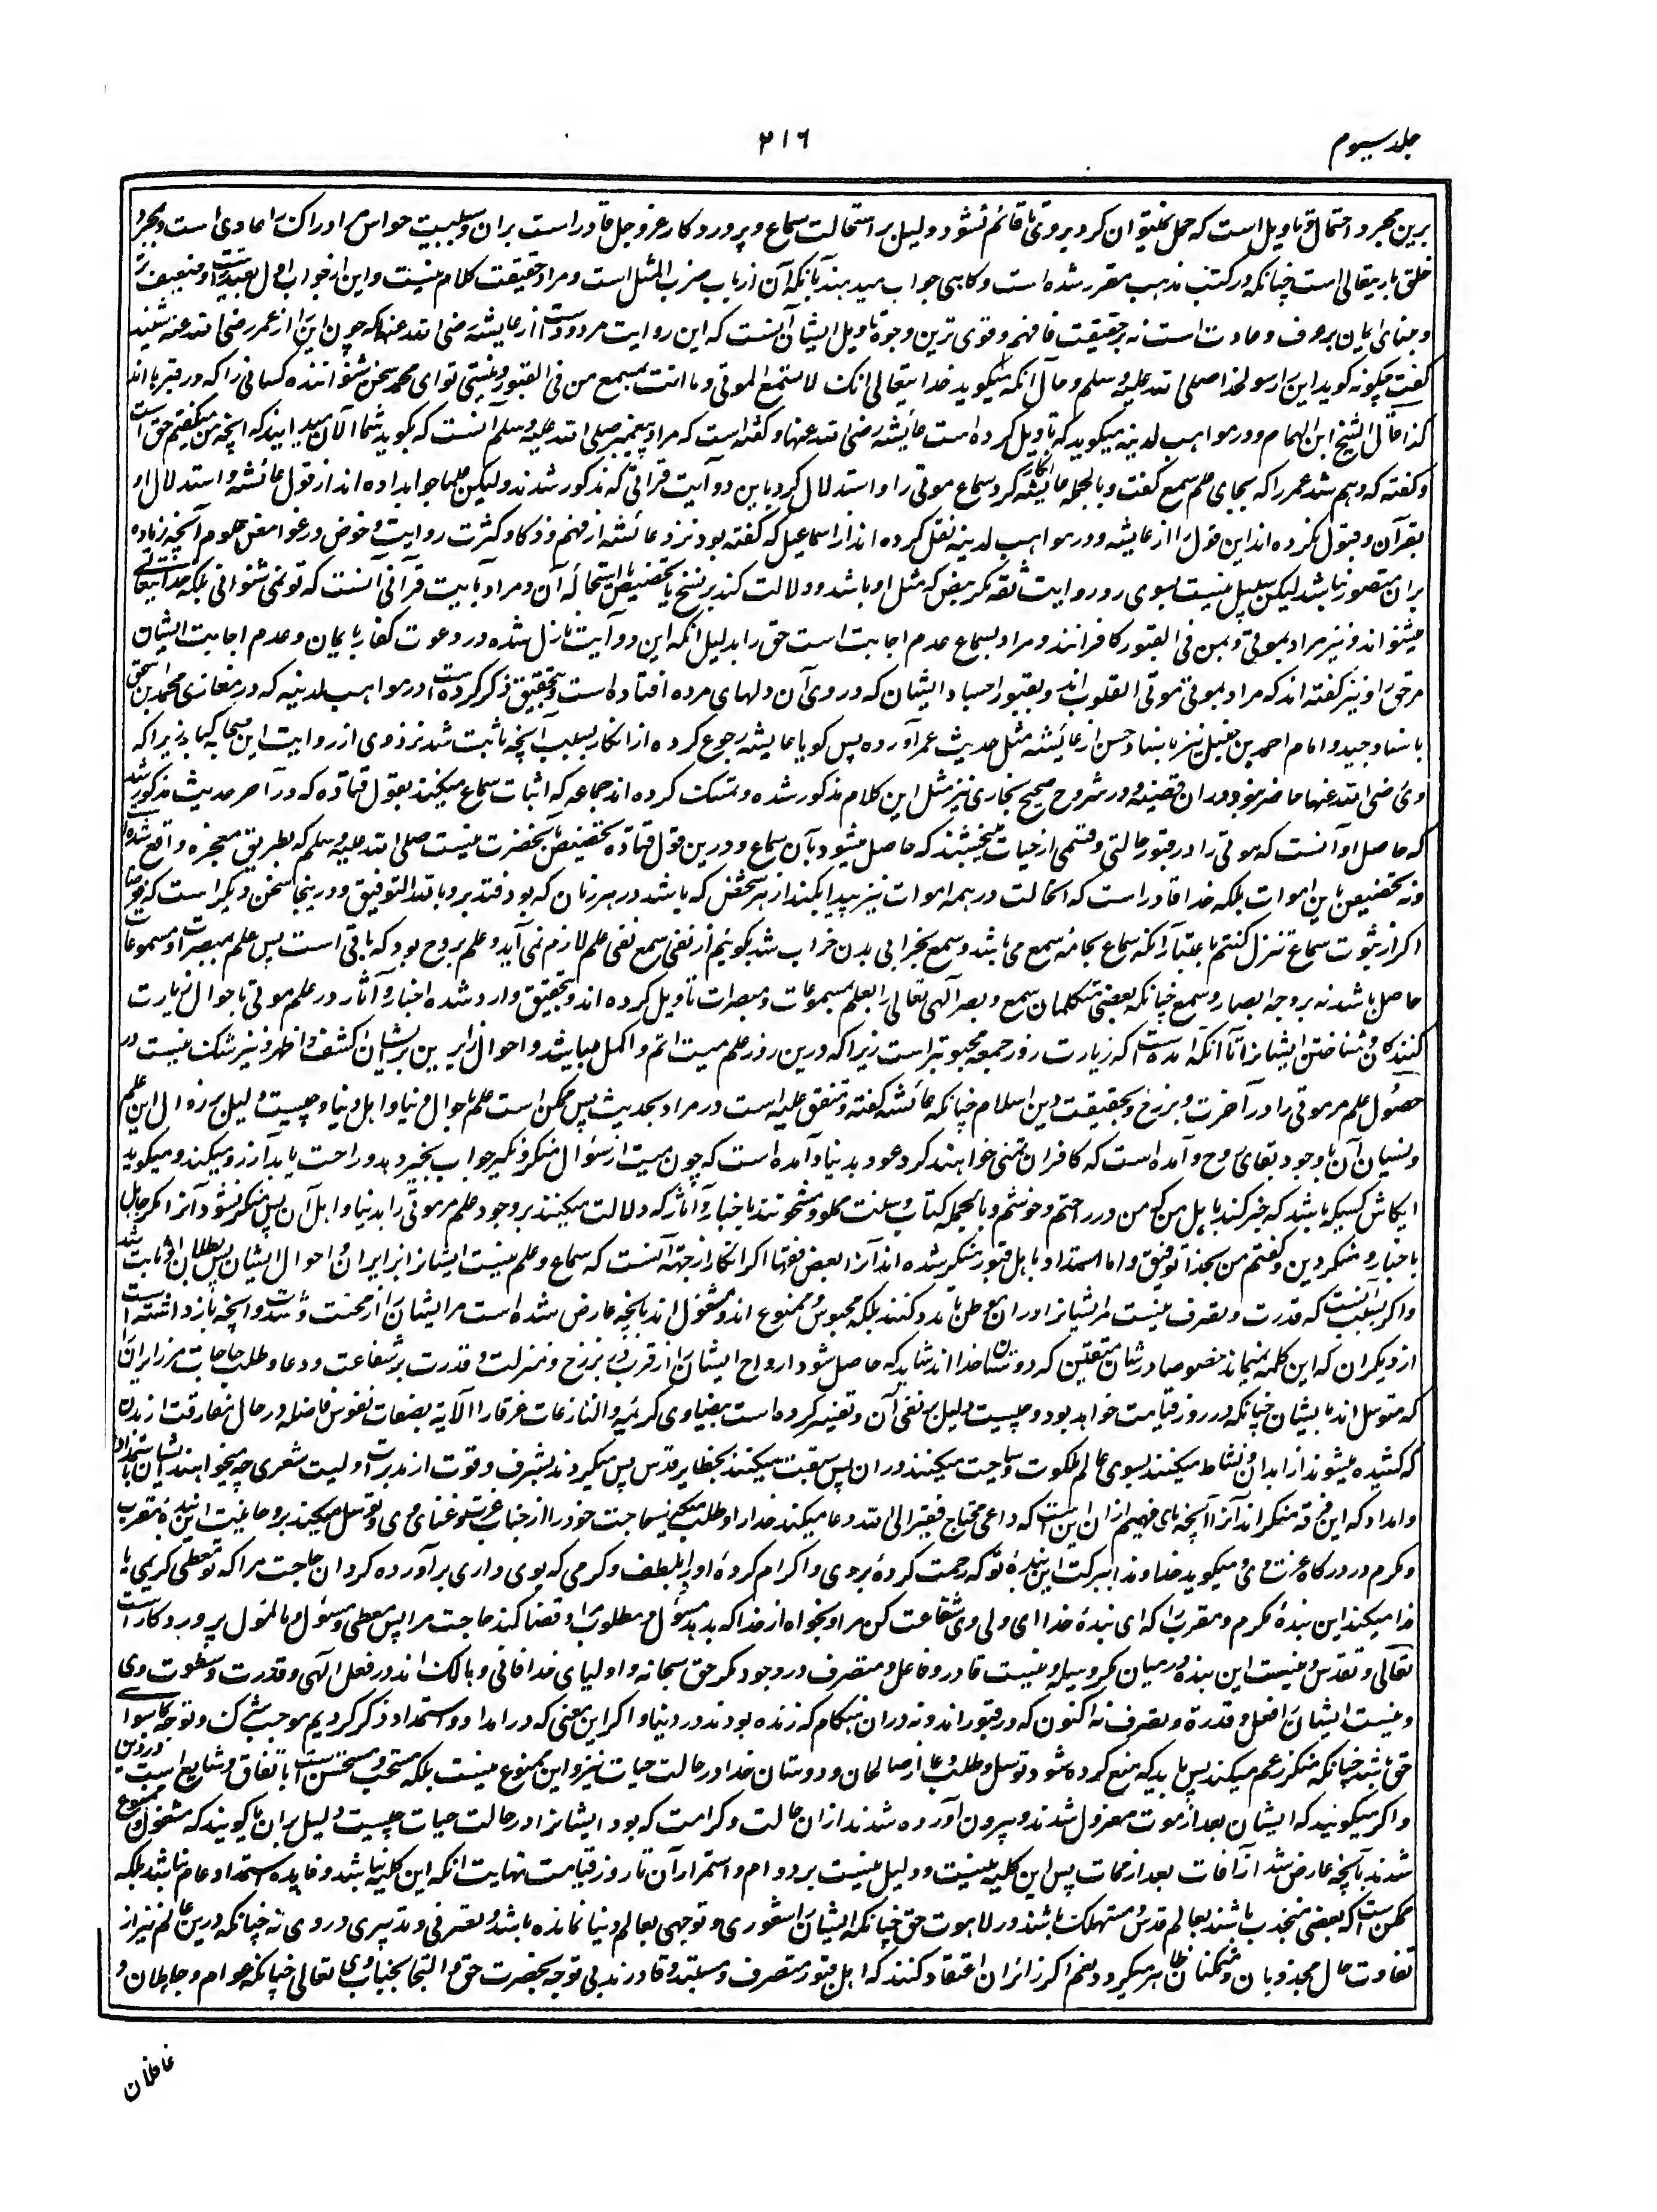 جلد سیوم
۴۱۶
برین مجرد احتمال و تاویل است که حمل نمیتوان کرد بر وی تا قائم نشود دلیل بر استحالت سماع و پروردگار عز و جل قادر است بران و سببیت حواس مر ادراک را عادی است و مجرد
خلق باریتعالی است چنانکه در کتب مذهب مقرر شده است و گاهی جواب میدهند بآنکه آن از باب ضرب المثل است و مراد حقیقت کلام نیست و این از جواب اول بعیدتر است و ضعیف تر
و مبنای ایمان بر عرف و عادت است نه بر حقیقت فافهم و قوی ترین وجوه تاویل ایشان آنست که این روایت مردود است از عایشه رضی الله عنها که چون این را از عمر رضی الله عنه شنید
گفت چگونه گوید این را رسول خدا صلی الله علیه و سلم و حال آنکه میگوید خدا یتعالی انک لا تسمع الموتی و ما انت بمسمع من فی القبور و نیستی تو ای محمد سخن شنواننده کسانی را که در قبرها اند
کذا قال الشیخ ابن الهمام و در مواهب لدنیه میگوید که تاویل کرده است عائشه رضی الله عنها و گفته است که مراد پیغمبر صلی الله علیه و سلم آنست که بگوید شما الآن میدانید که آنچه من میگفتم حق است
و گفته که وهم شد عمر را که بجای علم سمع گفت و بالجمله عائشه انکار کرد سماع موتی را و استدلال کرد باین دو آیت قرآنی که مذکور شدند و لیکن علما جواب داده اند از قول عائشه و استدلال او
بقرآن و قبول نکرده اند این قول را از عایشه و در مواهب لدنیه نقل کرده اند از اسماعیلی که گفته بود نزد عائشه از فهم و ذکا و کثرت روایت و خوض در غوامض علوم آنچه زیاده
بران متصور نباشد لیکن سبیل نیست بسوی رد روایت ثقه مگر بنص که مثل او باشد و دلالت کند بر نسخ یا تخصیص یا استحاله آن و مراد بآیت قرآنی آنست که تو نمی شنوانی بلکه خدا یتعالی
میشنواند و نیز مراد بموتی و بمن فی القبور کافرانند و مراد بسماع عدم اجابت است حق را بدلیل آنکه این دو آیت نازل شده در دعوت کفار بایمان و عدم اجابت ایشان
مر حق را و نیز گفته اند که مراد بموتی موتی القلوب اند و بقبور اجساد ایشان که در وی آن دلهای مرده افتاده است و بتحقیق ذکر کرده است در مواهب لدنیه که در مغازی محمد بن اسحق
باسناد جید و امام احمد بن حنبل نیز باسناد حسن از عائشه مثل حدیث عمر آورده پس گویا عایشه رجوع کرده از انکار بسبب آنچه ثابت شد نزد وی از روایت این صحابه کبار زیرا که
وی رضی الله عنها حاضر نبود دران قضیه و در شروح صحیح بخاری نیز مثل این کلام مذکور شده و تمسک کرده اند جماعه که اثبات سماع میکنند بقول قتاده که در آخر حدیث مذکور شد
که حاصل او آنست که موتی را در قبور حالتی و قسمی از حیات میبخشند که حاصل میشود بآن سماع و درین قول قتاده تخصیص بآنحضرت نیست صلی الله علیه و سلم که بطریق معجزه واقع شده است
و نه تخصیص باین اموات بلکه خدا قادر است که آنحالت در همه اموات نیز پیدا بکند از هر شخص که باشد در هر زمان که بود فتدبر و بالله التوفیق و درینجا سخن دیگر است که
اگر از ثبوت سماع تنزل کنیم باعتبار آنکه سماع بحاسه سمع می باشد و سمع بخرابی بدن خراب شد بگوئیم از نفی سمع نفی علم لازم نمی آید و علم بروح بود که باقی است پس علم مبصرات و مسموعات
حاصل باشد نه بر وجه ابصار و سمع چنانکه بعضی متکلمان سمع و بصر الهی تعالی را بعلم بمسموعات و مبصرات تأویل کرده اند و بتحقیق وارد شده اخبار و آثار در علم موتی باحوال زیارت
کنندگان و شناختن ایشانرا تا آنکه آمده است که زیارت روز جمعه محبوبتر است زیرا که درین روز علم میت اتم و اکمل میباشد و احوال زایرین بر ایشان اکشف و اظهر و نیز شک نیست در
حصول علم مر موتی را در آخرت و برزخ و بحقیقت دین اسلام چنانکه عائشه گفته و متفق علیه است در مراد بحدیث پس ممکن است علم باحوال دنیا و اهل دنیا و چیست دلیل بر زوال این علم
و نسیان آن با وجود بقای روح و آمده است که کافران تمنی خواهند کرد عود بدنیا و آمده است که چون میت از سؤال منکر و نکیر جواب بخیر دهد و راحت یابد آرزو میکند و میگوید
ایکاش کسیکه باشد که خبر کند باهل من که من در راحتم و خوشم و بالجمله کتاب و سنت مملو و مشحونند باخبار و آثار که دلالت میکنند بر وجود علم مر موتی را بدنیا و اهل آن پس منکر نشود آنرا مگر جاهل
باخبار و منکر دین و گفتم من بخدا توفیق و اما استمداد باهل قبور منکر شده اند آنرا بعض فقها اگر انکار از جهة آنست که سماع و علم نیست ایشانرا بزایران و احوال ایشان پس بطلان او ثابت شد
و اگر بسبب آنست که قدرت و تصرف نیست مر ایشانرا دران موطن تا مدد کنند بلکه محبوس و ممنوع اند و مشغول اند بآنچه عارض شده است مر ایشان را از محنت و شدت و آنچه باز داشته است
از دیگران که این کلیه نمیماند خصوصا در شان متقین که دوستان خدا اند شاید که حاصل شود ارواح ایشان را از قرب در برزخ و منزلت و قدرت بر شفاعت و دعا و طلب حاجات مر زایران را
که متوسل اند بایشان چنانکه در روز قیامت خواهد بود و چیست دلیل بر نفی آن و تفسیر کرده است بیضاوی کریمه و النازعات غرقا را الآیه بصفات نفوس فاضله در حال مفارقت از بدن
که کشیده میشوند از ابدان و نشاط میکنند بسوی عالم ملکوت و سیاحت میکنند دران پس سبقت میکنند بحظایر قدس پس میگردند بشرف و قوت از مدبرات و لیت شعری چه میخواهند ایشان باستمداد
و امداد که این فرقه منکر اند آنرا آنچه ما می فهمیم ازان این است که داعی محتاج فقیر الی الله دعا میکند خدا را و طلب میکند حاجت خود را از جناب عزت و غنای وی و توسل میکند بروحانیت این بنده مقرب
و مکرم در درگاه عزت وی و میگوید خداوندا ببرکت این بنده تو که رحمت کرده بر وی و اکرام کرده او را بلطف و کرمی که بوی داری برآورده گردان حاجت مرا که تو معطی کریمی یا
ندا میکند این بنده مکرم و مقرب را که ای بنده خدا ای ولی وی شفاعت کن مرا و بخواه از خدا که بدهد مسؤل و مطلوب مرا و قضا کند حاجت مرا پس معطی و مسؤل و مامول پروردگار است
تعالی و تقدس و نیست این بنده درمیان مگر وسیله و نیست قادر و فاعل و متصرف در وجود مگر حق سبحانه و اولیای خدا فانی و هالک اند در فعل الهی و قدرت و سطوت وی
و نیست ایشان را فعل و قدرة و تصرف نه اکنون که در قبور اند و نه دران هنگام که زنده بودند در دنیا و اگر این معنی که در امداد و استمداد ذکر کردیم موجب شرک و توجه بماسوای
حق باشد چنانکه منکر زعم میکند پس باید که منع کرده شود توسل و طلب دعا از صالحان و دوستان خدا در حالت حیات نیز و این ممنوع نیست بلکه مستحب و مستحسن است باتفاق و شایع است در دین
و اگر میگویند که ایشان بعد از موت معزول شدند و بیرون آورده شدند ازان حالت و کرامت که بود ایشانرا در حالت حیات چیست دلیل بران یا گویند که مشغول و ممنوع
شدند بآنچه عارض شد از آفات بعد از ممات پس این کلیه نیست و دلیل نیست بر دوام و استمرار آن تا روز قیامت نهایت آنکه این کلیه نباشد و فایده استمداد عام نباشد بلکه
ممکن است که بعضی منجذب باشند بعالم قدس و مستهلک باشند در لاهوت حق چنانکه ایشان را شعوری و توجهی بعالم دنیا نمانده باشد و تصرفی و تدبیری در وی نه چنانکه درین عالم نیز از
تفاوت حال مجذوبان و متمکنان ظاهر میگردد نعم اگر زائران اعتقاد کنند که اهل قبور متصرف و مستبد و قادرند بی توجه بحضرت حق و التجا بجناب وی تعالی چنانکه عوام و جاهلان و
غافلان